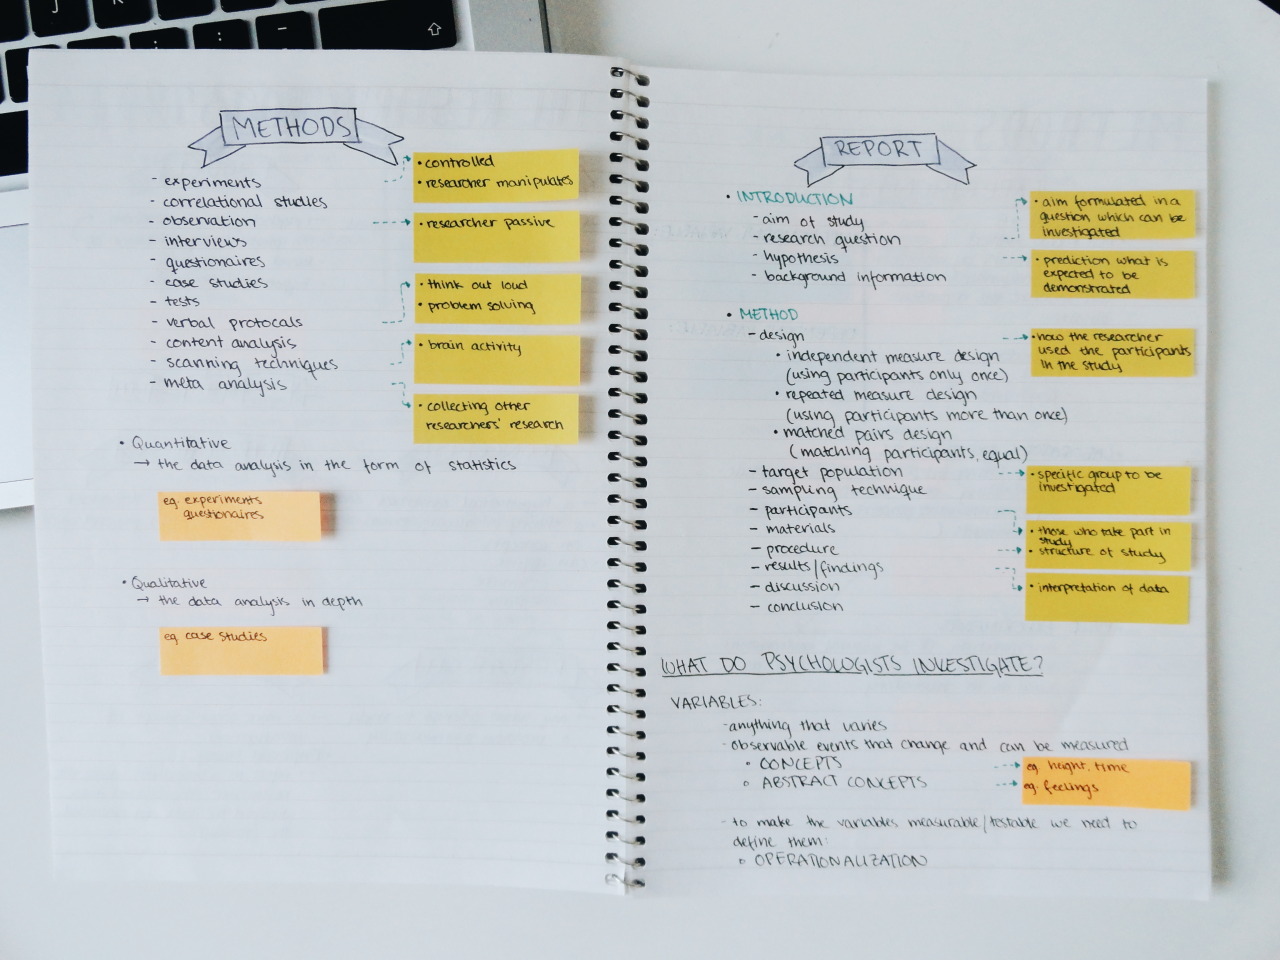 METHODS
- experiments
- correlational studies
- observation
- interviews
- questionaires
- case studies
- tests
- verbal protocals
- content analysis
- scanning techniques
- meta analysis
• controlled
• researcher manipulates
• researcher passive
• think out loud
• problem solving
• brain activity
• collecting other
researchers' research
• Quantitative
→ the data analysis in the form of statistics
eg. experiments
questionaires
• Qualitative
→ the data analysis in depth
eg. case studies
REPORT
• INTRODUCTION
- aim of study
- research question
- hypothesis
- background information
• aim formulated in a
question which can be
investigated
• prediction what is
expected to be
demonstrated
• METHOD
- design
• independent measure design
(using participants only once)
• repeated measure design
(using participants more than once)
• matched pairs design
(matching participants, equal)
- target population
- sampling technique
- participants
- materials
- procedure
- results/findings
- discussion
- conclusion
• how the researcher
used the participants
in the study
• specific group to be
investigated
• those who take part in
study
• structure of study
• interpretation of data
WHAT DO PSYCHOLOGISTS INVESTIGATE?
VARIABLES:
- anything that varies
- observable events that change and can be measured
• CONCEPTS
• ABSTRACT CONCEPTS
eg. height, time
eg. feelings
- to make the variables measurable/testable we need to
define them:
• OPERATIONALIZATION